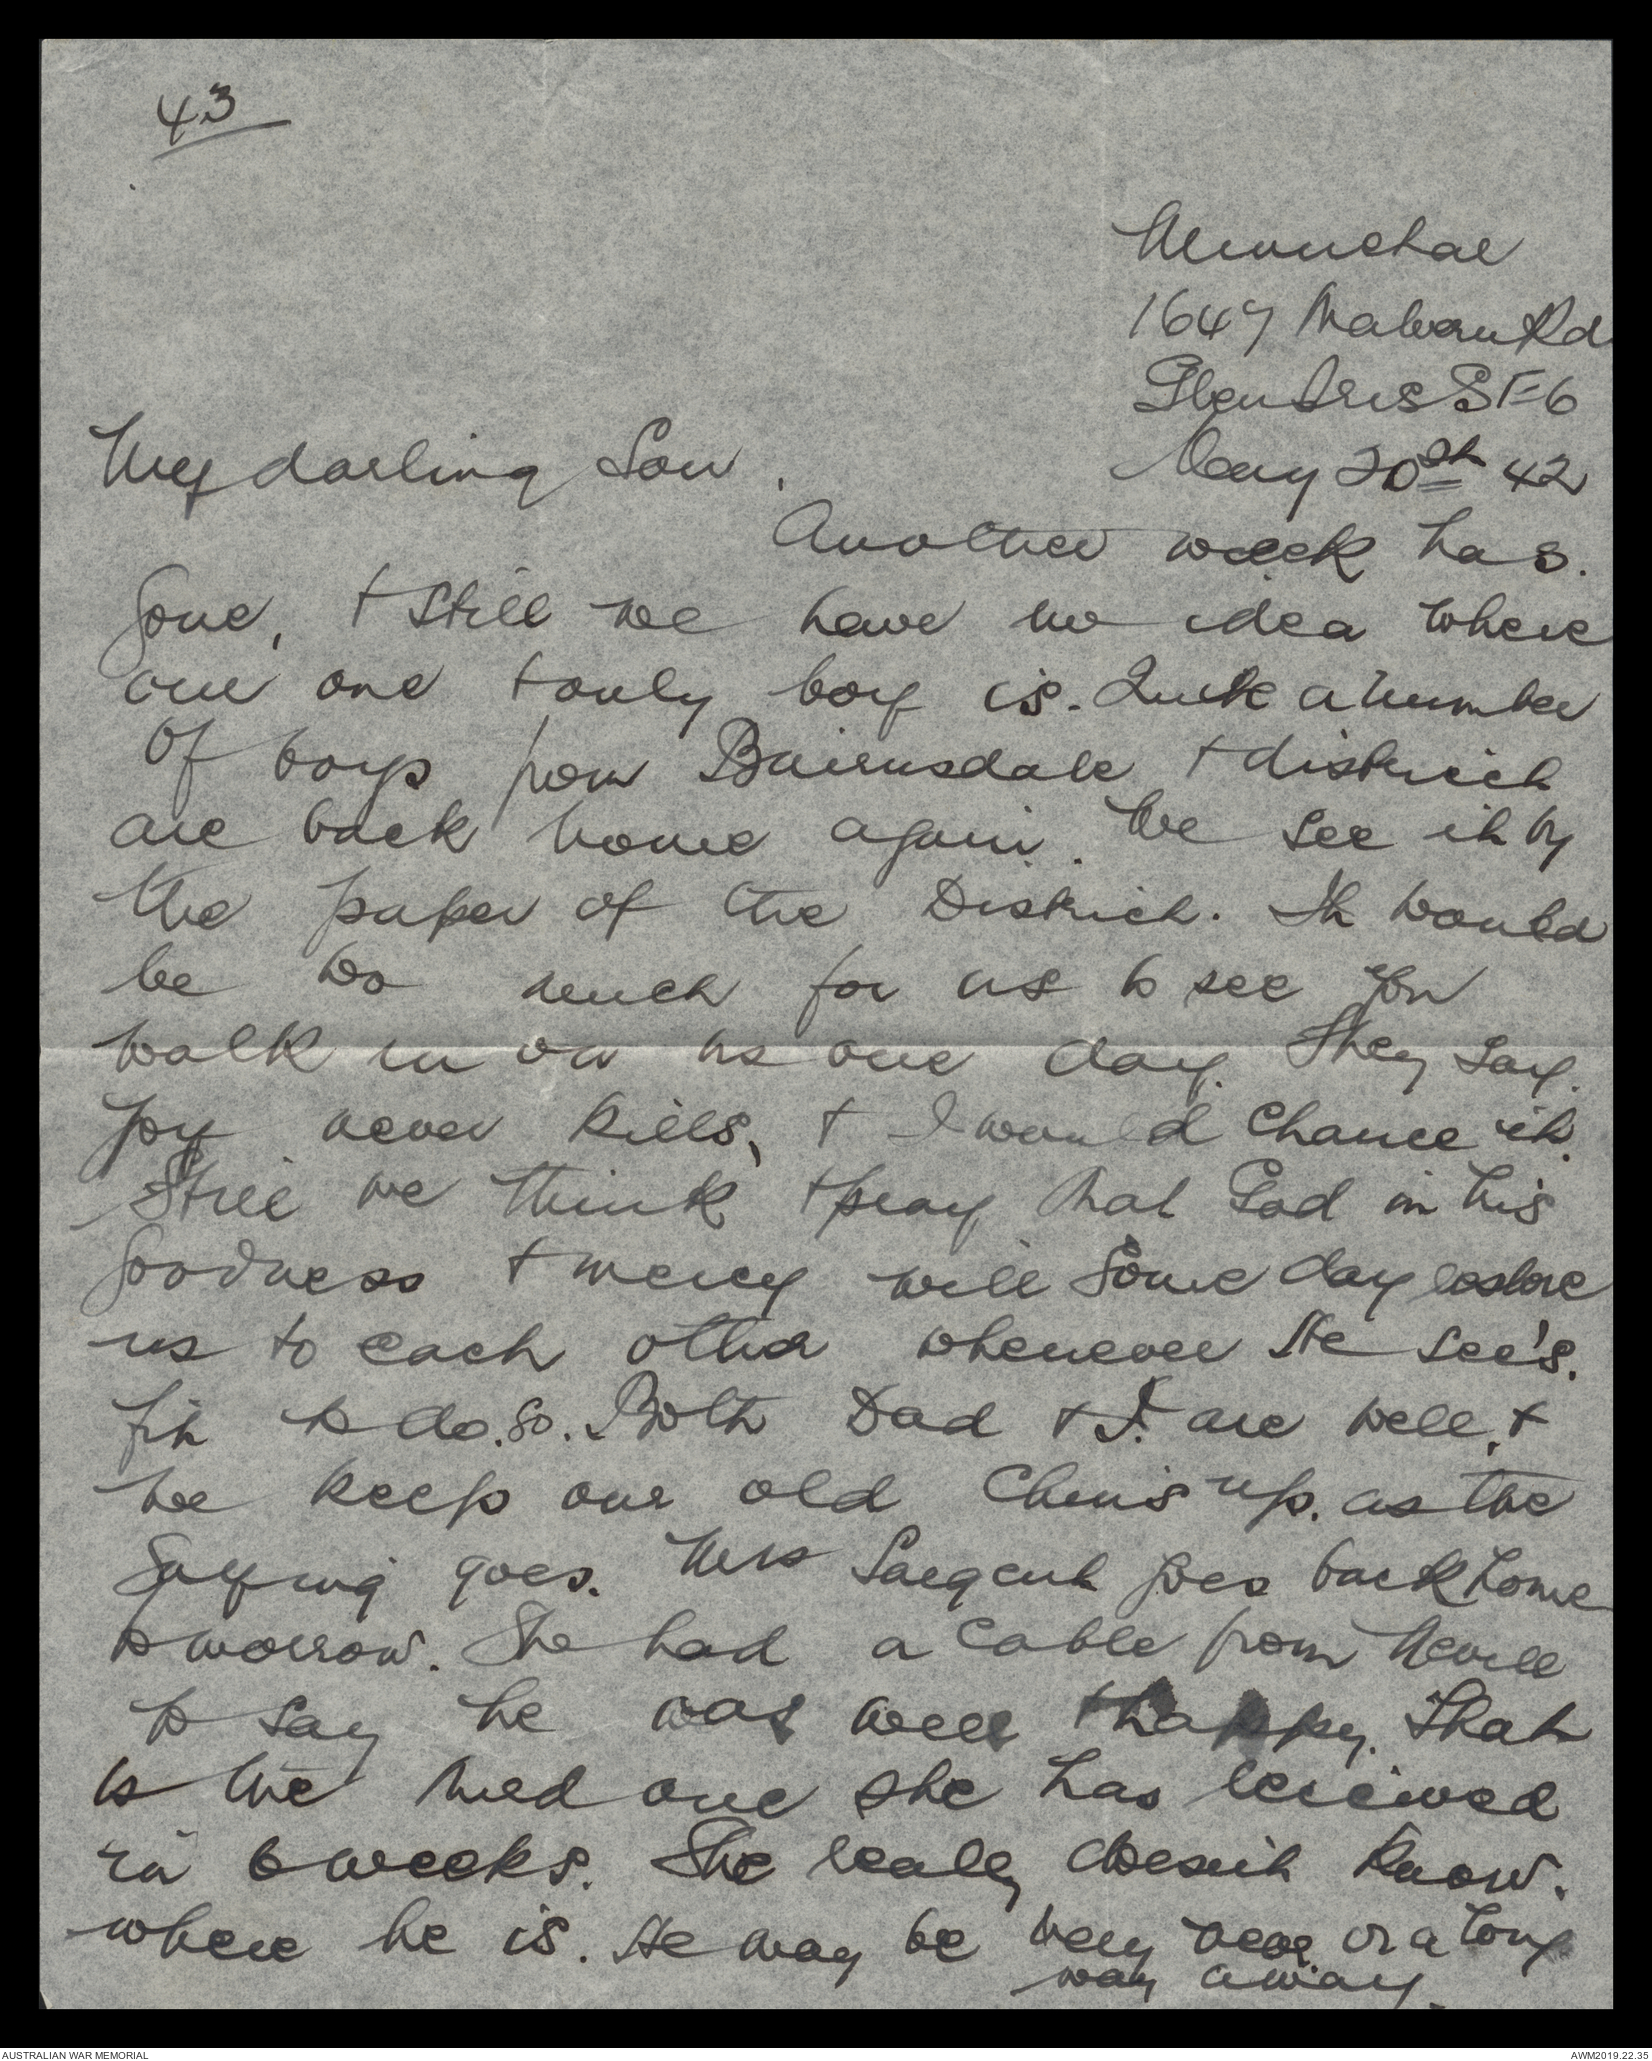 43
1647 Malvern Rd
Glen Iris SE6
My darling Son,
May 20th 42
Another week has.
gone, + still we have no idea where
our one + only boy is. Quite a number
of boys from Bairnsdale + district
are back home again. We see it by
the paper of the District. It would
be too much for us to see you
walk in on us one day. They say.
joy never kills, + I would chance it.
Still we think + pray that God in his
goodness + mercy will some day restore
us to each other whenever He see's.
fit to do.so. Both Dad + I. are well, +
we keep our old chins up. as the
saying goes. Mrs Sargent goes back home
tomorrow. She had a cable from Nevill
to say he was well + happy. That
is the third one she has received
in 6 weeks. She really doesn't know.
where he is. He may be very near or a long
way away.
AUSTRALIAN WAR MEMORIAL
AWM2019.22.35